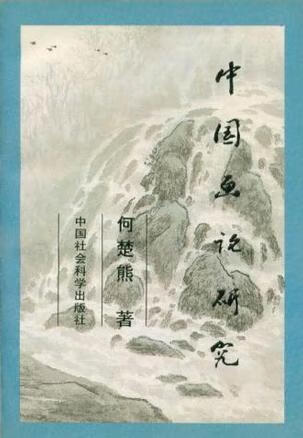 中国画论研究
何楚熊 著
中国社会科学出版社